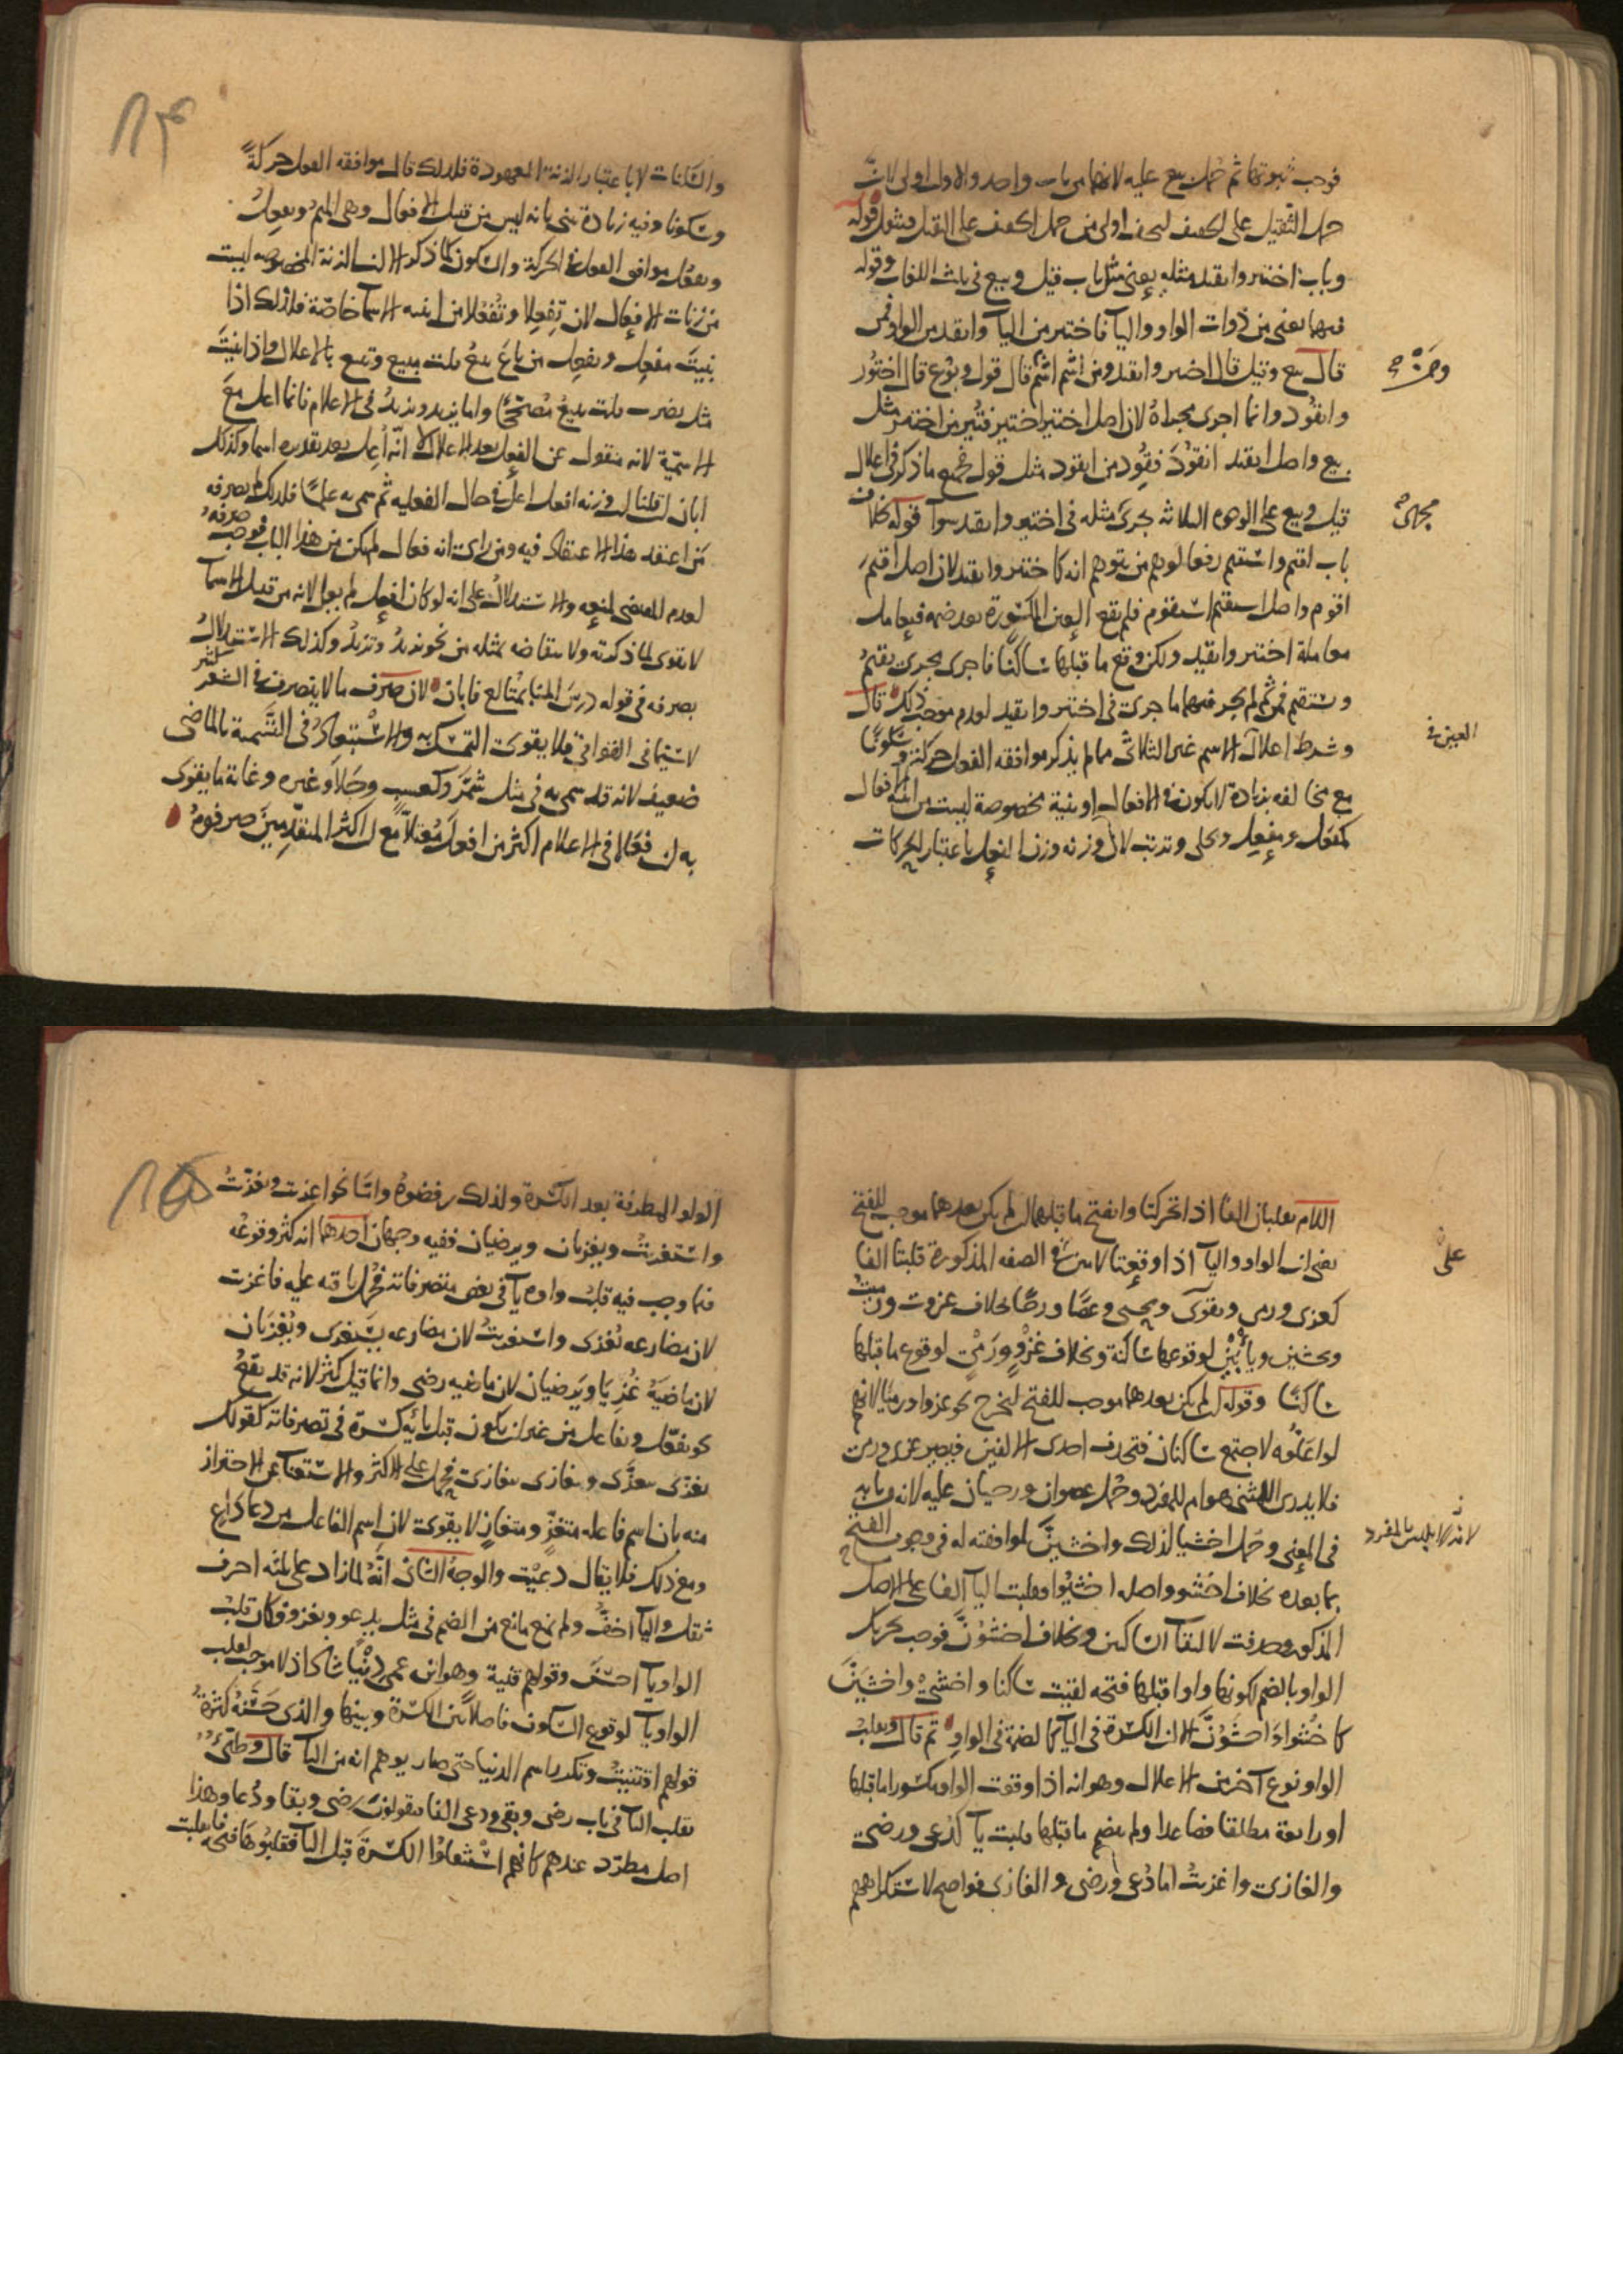 فوجب ثبوتها ثم حمل بيع عليه لانهما من باب واحد والاول اولى لان
حمل الثقيل على الخفيف ليخف اولى من حمل الخفيف على الثقيل فيثقل قوله
وباب اختير وانقيد مثله يعني مثل باب قيل وبيع في ثلث اللغات وقوله
فيها يعني من ذوات الواو واليآ فاختير من اليآ وانقيد من الواو فمن
قال بيع وقيل قال اختير وانقيد ومن اشم اشم ومن قال قول وبوع قال اختور
وانقود وانما اجرى مجراه لان اصل اختير اختير فتير من اختير مثل
بيع واصل انقيد انقود فقود من انقود مثل قول فجميع ما ذكر في اعلال
قيل وبيع على الوجوه الثلاثه يجرى مثله في اختير وانقيد سوآ قوله بخلاف
باب اقيم واستقيم رفعا لوهم من يتوهم انه كاختير وانقيد لان اصل اقيم
اقوم واصل استقيم استقوم فلم تقع العين المكسورة بعد ضمه فيعامل
معاملة اختير وانقيد ولكن وقع ما قبلها ساكنا فاجرى مجرى يقيم
ويستقيم فمن ثم لم يجر فيهما ما جرى في اختير وانقيد لعدم موجب ذلك قال
وشرط اعلال العين في الاسم غير الثلاثي مما لم يذكر موافقه الفعل حركة وسكونا
مع مخالفه بزيادة لا تكون في الافعال او بنية مخصوصة ليست من ابنية الافعال
كمفعل ومفعل
لان وزنه وزن افعل باعتبار الحركات
والسكنات لا باعتبار الزنة المعهودة فلذلك قال موافقه الفعل حركة
وسكونا وفيه زيادة تنبى بانه ليس من قبيل الافعال وهى الميم وتفعل
وتفعل موافق الفعل في الحركة والسكون كما ذكر الا ان الزنة المخصوصه ليست
من زنات الافعال لان تفعلا وتفعلا من ابنيه الاسما خاصة فلذلك اذا
بنيت مفعل وتفعل من باع يبيع قلت مبيع وتبيع بالاعلال واذا بنيت
مثل يضرب قلت يبيع مصححا واما يزيد وتزيد في الاعلام فانما اعل مع
الاسمية لانه منقول عن الفعل بعد الاعلال لا انه اعل بعد تقديره اسما وكذلك
ابان ان قلنا ان وزنه افعل اعل في حال الفعليه ثم سمى به علما فلذلك لم يصرفه
من اعتقد هذا الاعتقاد فيه ومن رأى انه فعال لم يكن من هذا الباب فوجب صرفه
لعدم المقتضى لمنعه والاستدلال على انه لو كان افعل لم يعل لانه من قبيل الاسما
لا يقوى لما ذكرته ولا نتقاضه بمثله من نحو يزيد وتزيد وكذلك الاستدلال
بصرفه في قوله درس المنا بمتالع فابان لان صرف ما لا ينصرف في الشعر كثير
لا سيما في القوافي فلا يقوى التمسك به والاستبعاد في التسمية بالماضى
ضعيف لانه قد سمى به في مثل شمر وكعسب وجلا وغيره وغاية ما يقوى
به ان فعالا في الاعلام اكثر من افعل معتلا مع ان اكثر المتقدمين صرفوه
اللام تقلبان الفا اذا تحركتا وانفتح ما قبلهما ان لم يكن بعدهما موجب للفتح
يعنى ان الواو واليآ اذا وقعتا لامين على الصفه المذكورة قلبتا الفا
كغزى ورمى ويقوى ويحيى وعصا ورحا بخلاف غزوت ورميت
ويخشين ويأبين لوقوعها ساكنة وبخلاف غزو ورمى لوقوع ما قبلها
ساكنا وقوله ان لم يكن بعدهما موجب للفتح ليخرج نحو غزوا ورميا لانهم
لو اعلوه لاجتمع ساكنان فتحذف احدى الالفين فيصير غزى ورمى
فلا يدرى المثنى هو ام للمفرد وحمل عصوان ورحيان عليه لانه من بابه
في المعنى وحمل اخشيا لذلك واخشين لموافقته له في وجوب الفتح
بما بعده بخلاف اخشوا واصله اخشيوا فقلبت اليآ الفا على الاصل
المذكور وحذفت لالتقآ الساكنين وبخلاف اخشون فوجب تحريك
الواو بالضم لكونها واوا قبلها فتحه لقيت ساكنا واخشى واخشين
كاخشوا واخشون الا ان الكسرة في اليآ كالضمة في الواو ثم قال وتقلب
الواو نوع آخر من الاعلال وهو انه اذا وقعت الواو مكسورا ما قبلها
او رابعة مطلقا فصاعدا ولم ينضم ما قبلها قلبت يآ كدعى ورضى
والغازى واغزيت اما دعى ورضى والغازى فواضح لاستكراههم
الواو المتطرفة بعد الكسرة ولذلك رفضوه واما نحو اغزيت وتغزيت
واستغزيت ويغزيان ويرضيان ففيه وجهان احدهما انه كثر وقوعه
فيما وجب فيه قلب واوه يآ في بعض متصرفاته فحمل باقيه عليه فاغزيت
لان مضارعه يغزى واستغزيت لان مضارعه يستغزى ويغزيان
لان ماضيه غزيا ويرضيان لان ماضيه رضى وانما قيل كثر لانه قد يقع
نحو تفعل وتفاعل من غير ان يكون قبل يائه كسرة في تصرفاته كقولك
تغزى يتغزى وتغازى يتغازى فحمل على الاكثر والاستغنا عن الاحتراز
منه بان اسم فاعله متغز ومتغاز لا يقوى لان اسم الفاعل من دعا داع
ومع ذلك فلا يقال دعيت والوجه الثانى انه لما زاد على ثلثه احرف
ثقل واليآ اخف ولم يمنع مانع من الضم في مثل يدعو ويغزو فكان قلب
الواو يآ احسن وقولهم قنية وهو ابن عمى دنيا شاذ اذ لا موجب لقلب
الواو يآ لوقوع السكون فاصلا بين الكسرة وبينها والذى حسنه كثرة
قولهم اقتنيت وتكرر اسم الدنيا حتى صار يوهم انه من اليآ قال وطيئ
تقلب اليآ في باب رضى وبقى ودعى الفا فيقولون رضى وبقا ودعا وهذا
اصل مطرد عندهم كانهم استثقلوا الكسرة قبل اليآ فقلبوها فتحه فانقلبت